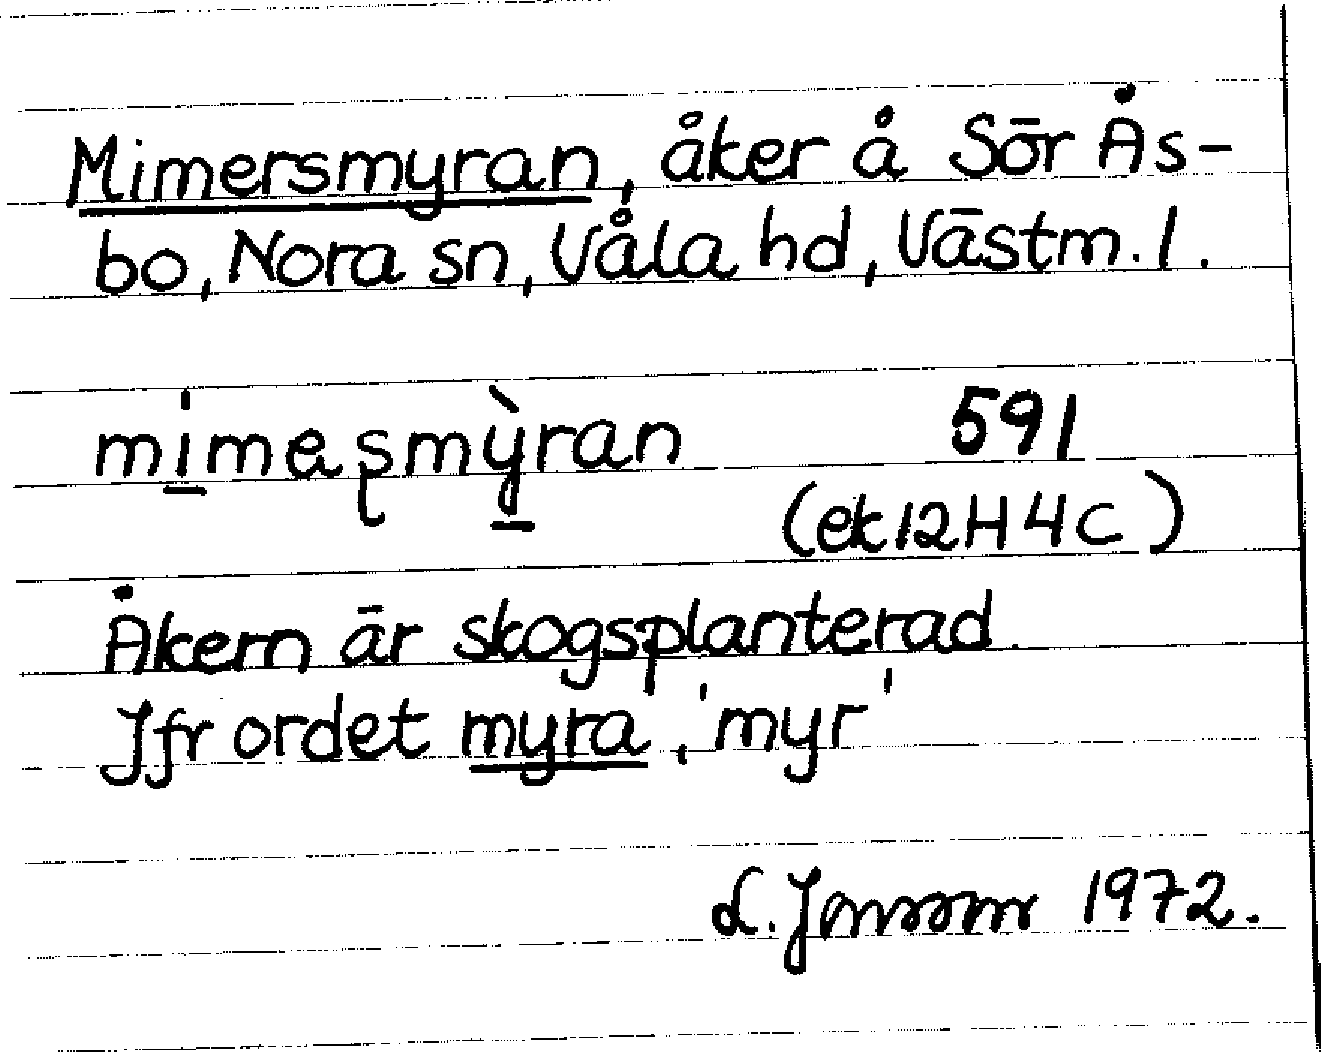 Mimersmyran, åker å Sör Ås-
bo, Nora sn, Våla hd, Västm. l.
mi̲meʂmỳ̲ran 591
(ek 12H 4c)
Åkern är skogsplanterad.
Jfr ordet myra, 'myr'
L. Jonsson 1972.